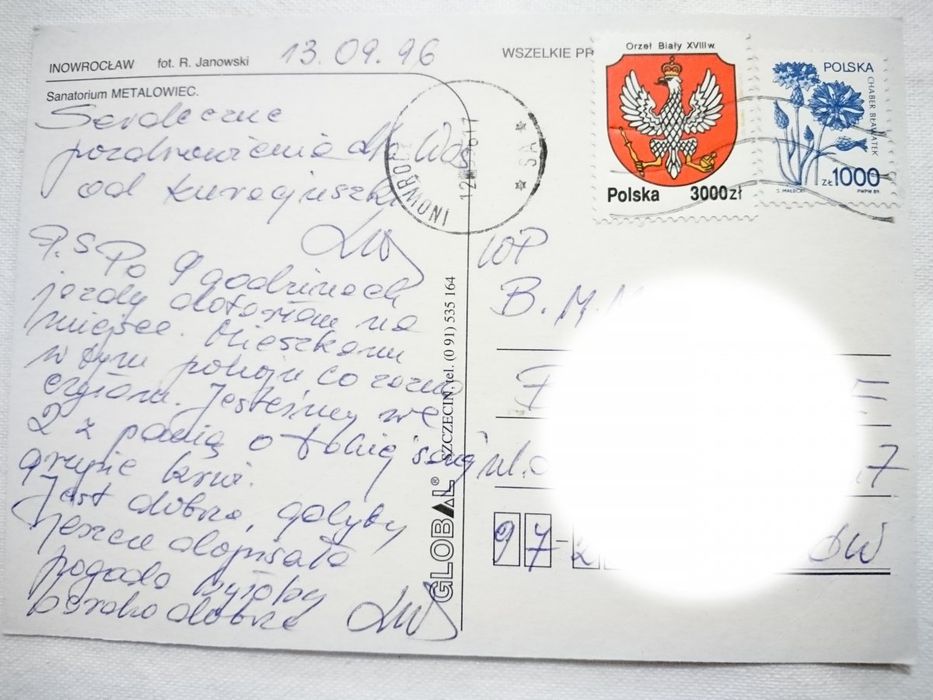 INOWROCŁAW fot. R. Janowski 13.09.96
Sanatorium METALOWIEC.
Serdeczne
pozdrowienia dla Was
od kuracjuszki
P.S Po 9 godzinach
jazdy dotarłam na
miejsce. Mieszkam
w tym pokoju co zazn
czyłam. Jesteśmy we
2 z panią o takiej samej
grupie krwi.
Jest dobrze, gdyby
jeszcze dopisała
pogoda byłoby
bardzo dobrze
GLOBAL® SZCZECIN, tel. (0 91) 535 164
WSZELKIE PR
INOWROCŁ
12
Orzeł Biały XVIII w.
Polska 3000 zł
POLSKA
CHABER BŁAWATEK
ZŁ 1000
S. MAŁECKI PWPW 89
WP
B. M.
ul.
7
97-2
ów